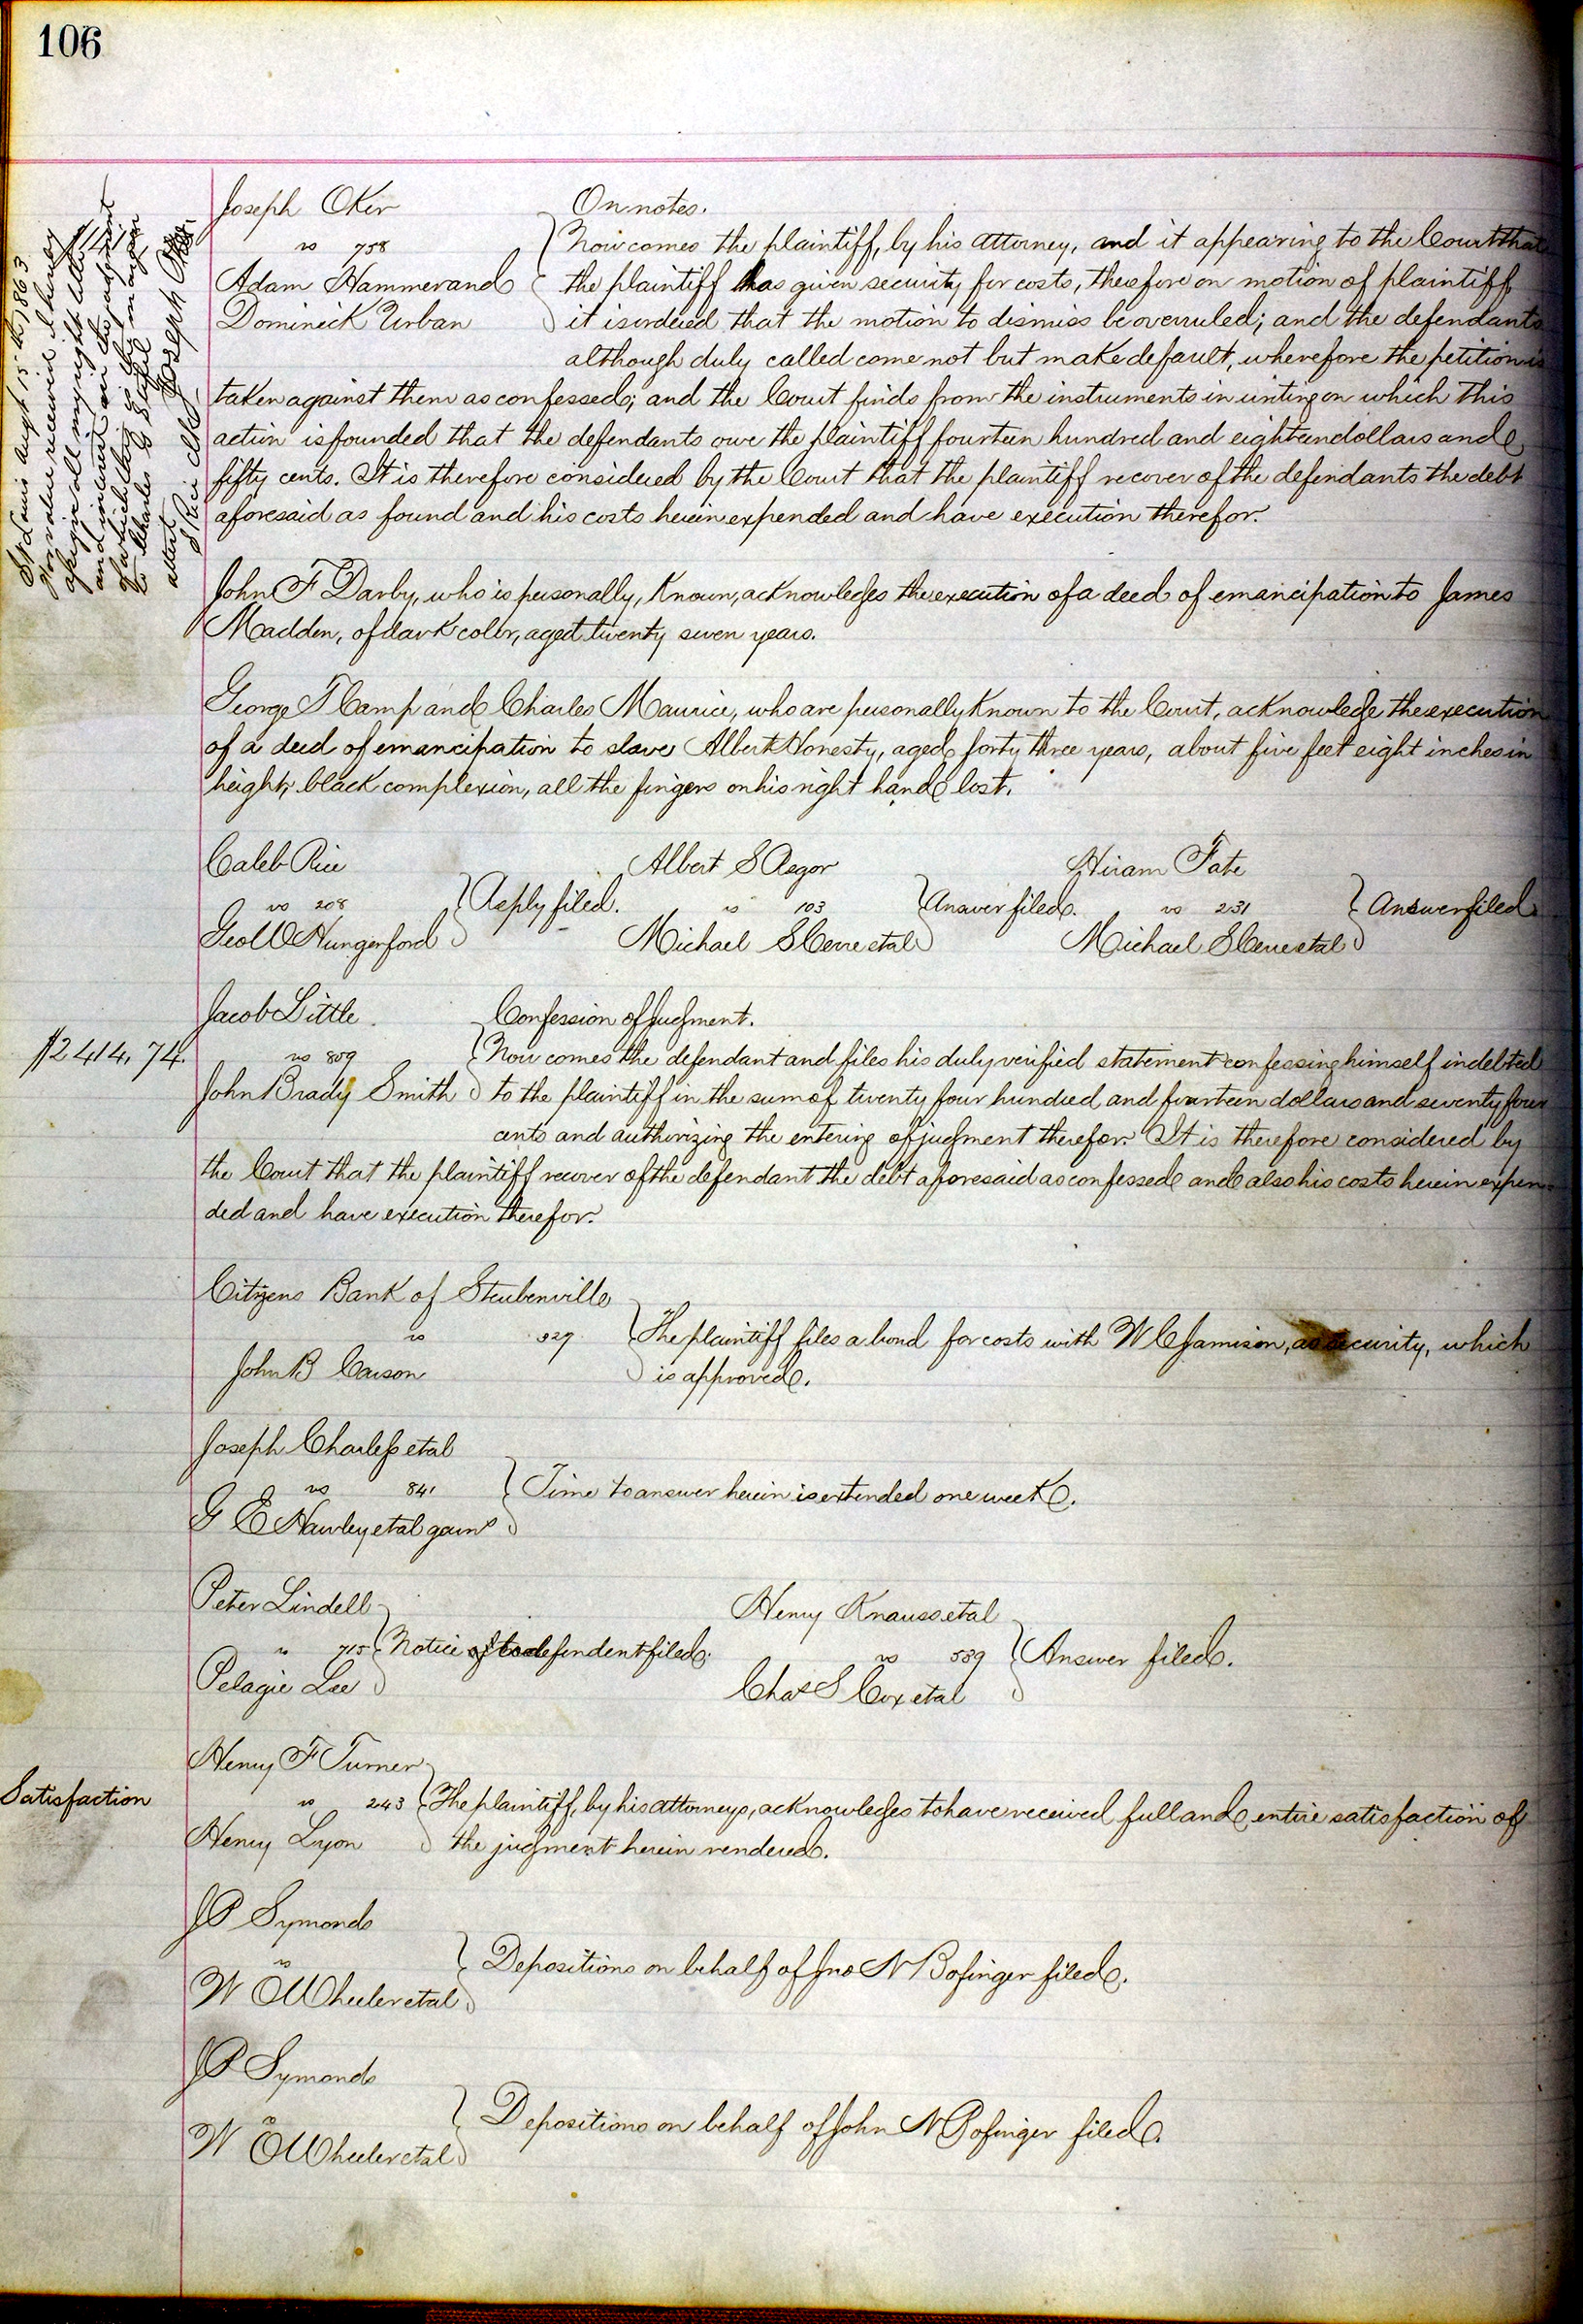 106
Joseph Oker
vs 758
Adam Hammerand
Domineck Urban
On notes.
Now comes the plaintiff, by his attorney, and it appearing to the Court that
the plaintiff has given security for costs, therefore on motion of plaintiff
it is ordered that the motion to dismiss be overruled; and the defendants
although duly called come not but make default, wherefore the petition is
taken against them as confessed; and the Court finds from the instruments in writing on which this
action is founded that the defendants owe the plaintiff fourteen hundred and eighteen dollars and
fifty cents. It is therefore considered by the Court that the plaintiff recover of the defendants the debt
aforesaid as found and his costs herein expended and have execution therefor.
St Louis Augt 15th 1863
For value received I hereby
assign all my right title
and interest in the judgment
of which this is the margin
to Charles G
attest
S Rice clk Joseph Oker
John F Darby, who is personally, known, acknowledges the execution of a deed of emancipation to James
Madden, of dark color, aged twenty seven years.
George T Camp and Charles Maurice, who are personally known to the Court, acknowledge the execution
of a deed of emancipation to slave Albert Honesty, aged forty three years, about five feet eight inches in
height, black complexion, all the fingers on his right hand lost.
Caleb Rice
vs 208
Geo W Hungerford
Reply filed.
Albert S
vs 103
Michael S Cerre etal
Answer filed.
Hiram Tate
vs 231
Michael S Cerre etal
Answer filed
$2414,74.
Jacob Little
vs 809
John Brady Smith
Confession of Judgment.
Now comes the defendant and files his duly verified statement confessing himself indebted
to the plaintiff in the sum of twenty four hundred and fourteen dollars and seventy four
cents and authorizing the entering of judgment therefor. It is therefore considered by
the Court that the plaintiff recover of the defendant the debt aforesaid as confessed and also his costs herein expen-
ded and have execution therefor.
Citizens Bank of Steubenville
vs 929
John B Carson
The plaintiff files a bond for costs with W C Jamison, as security, which
is approved.
Joseph Charless etal
vs 841
G E Hawley etal
Time to answer herein is extended one week.
Peter Lindell
vs 715
Pelagie Lee
Notice to defendent filed.
Henry Knauss etal
vs 589
Chas S Cox etal
Answer filed.
Satisfaction
Henry F Turner
vs 243
Henry Lyon
The plaintiff, by his attorneys, acknowledges to have received full and entire satisfaction of
the judgment herein rendered.
J P Symonds
vs
W O Wheeler etal
Depositions on behalf of Jno N Bofinger filed.
J P Symonds
vs
W O Wheeler etal
Depositions on behalf of John N Bofinger filed.